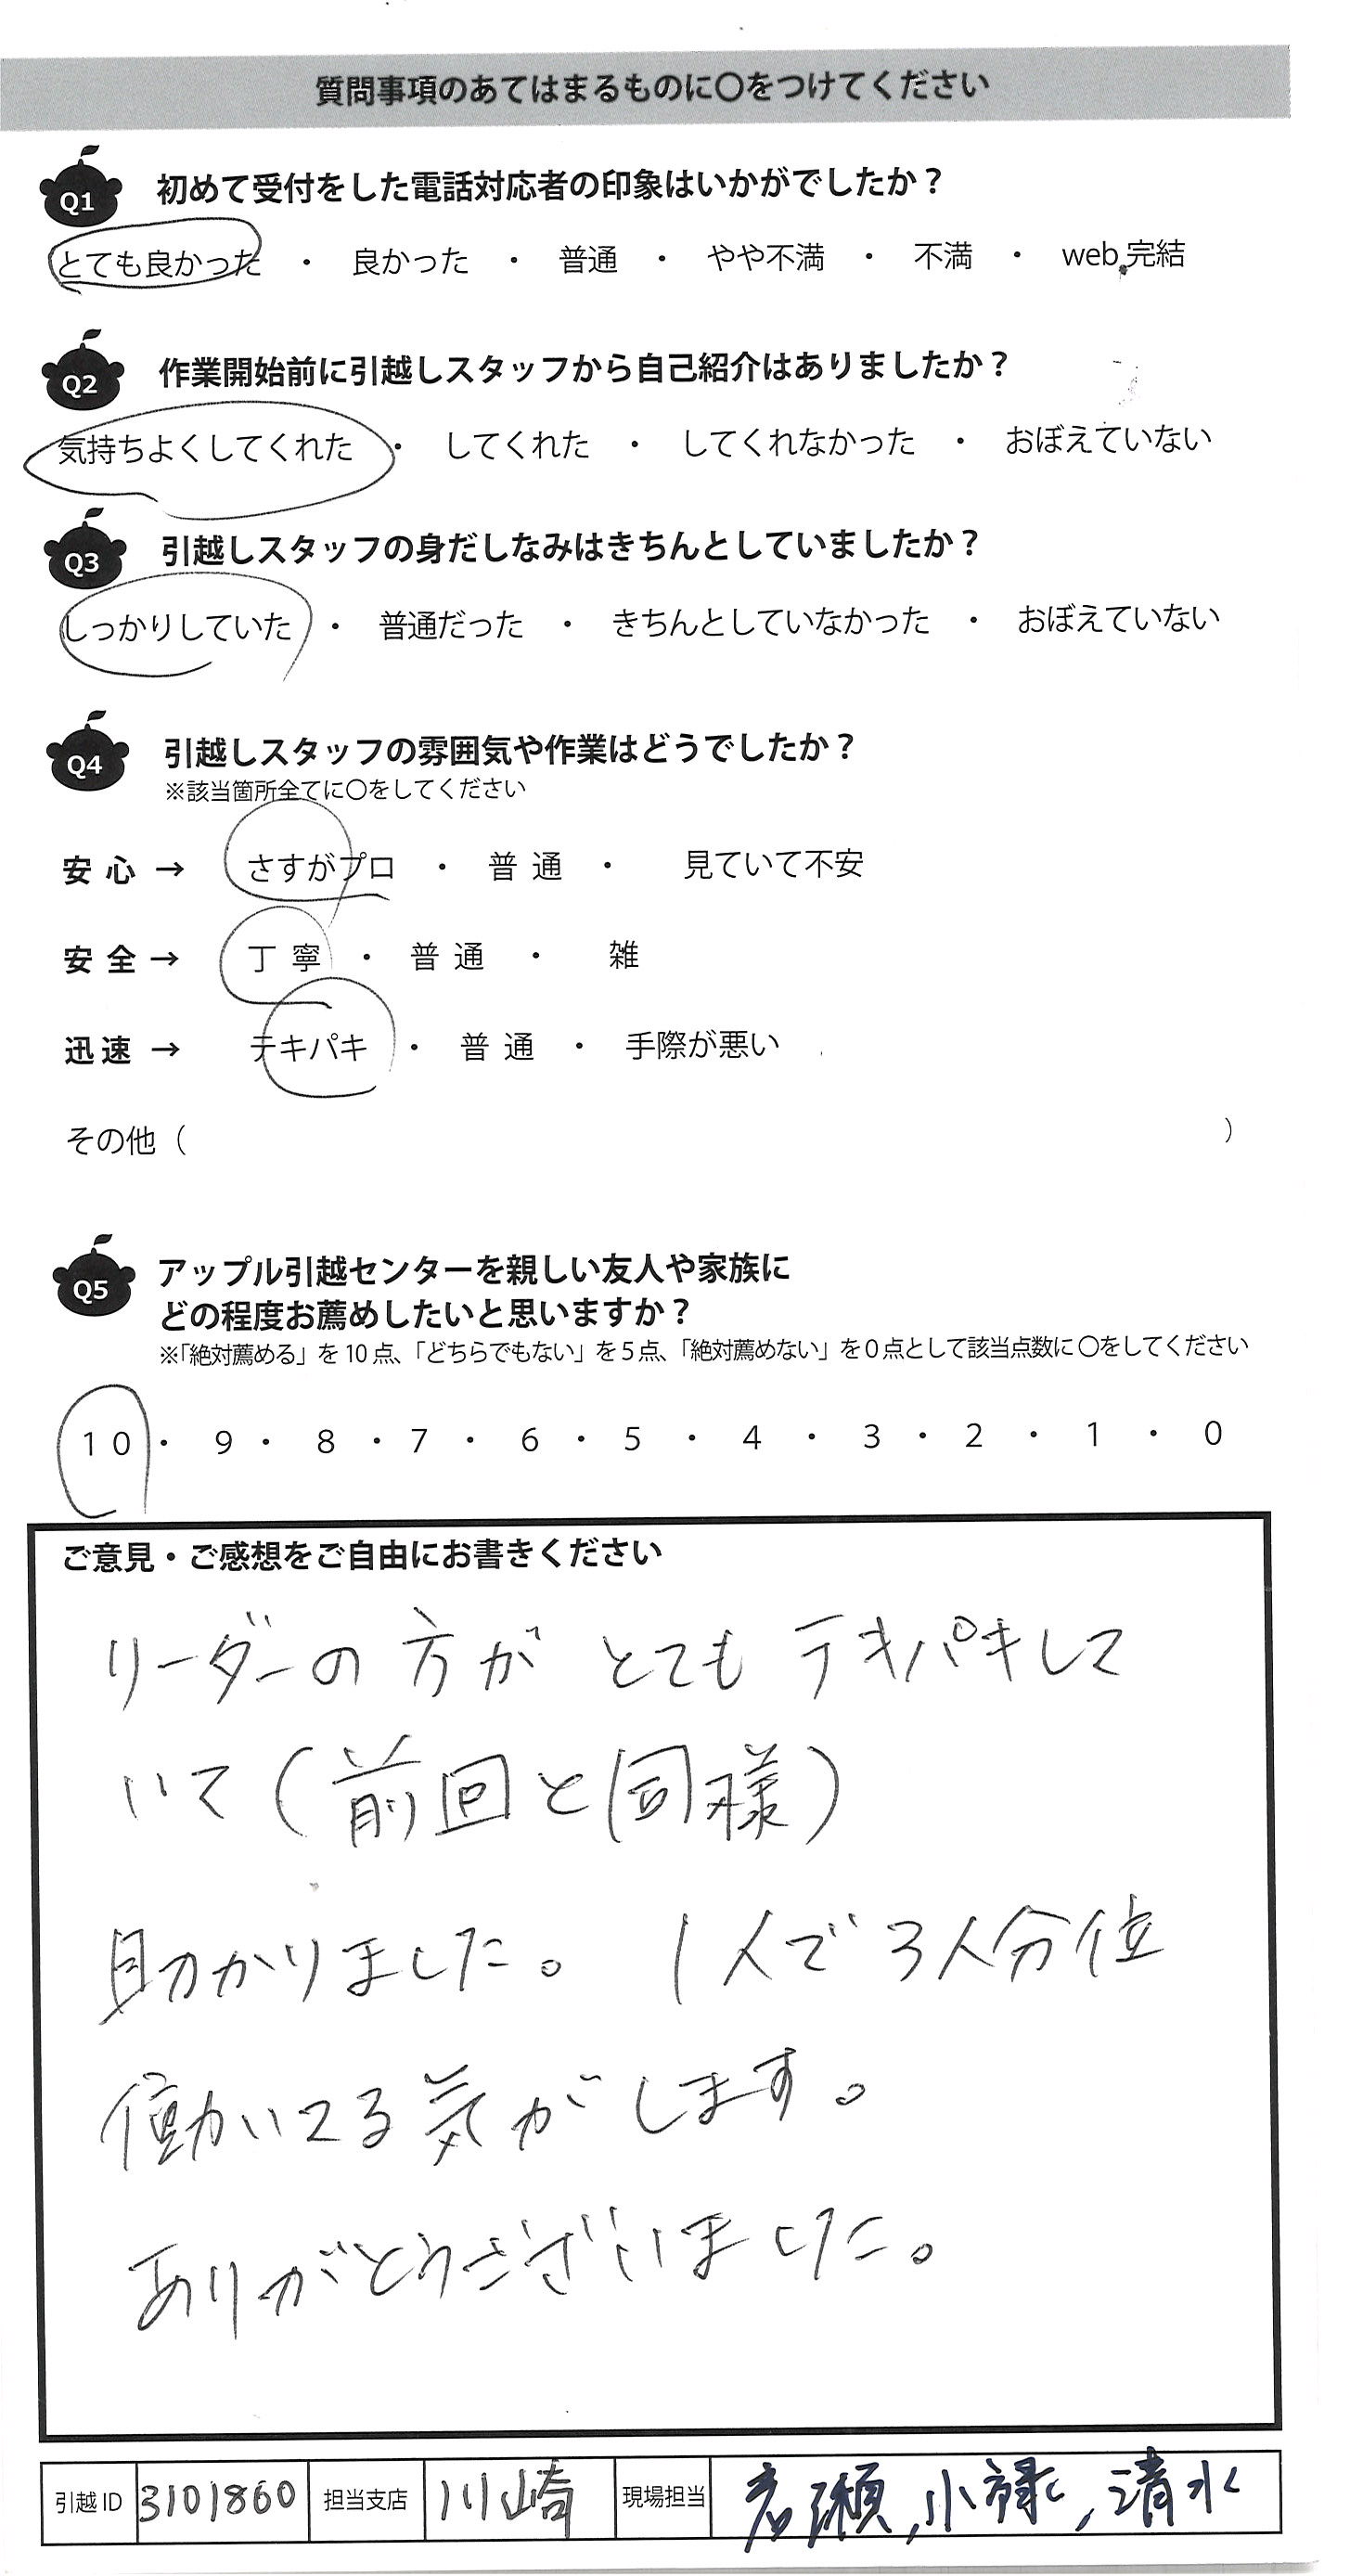 質問事項のあてはまるものに〇をつけてください
Q1 初めて受付をした電話対応者の印象はいかがでしたか？
とても良かった ・ 良かった ・ 普通 ・ やや不満 ・ 不満 ・ web完結
Q2 作業開始前に引越しスタッフから自己紹介はありましたか？
気持ちよくしてくれた ・ してくれた ・ してくれなかった ・ おぼえていない
Q3 引越しスタッフの身だしなみはきちんとしていましたか？
しっかりしていた ・ 普通だった ・ きちんとしていなかった ・ おぼえていない
Q4 引越しスタッフの雰囲気や作業はどうでしたか？
※該当箇所全てに〇をしてください
安心 → さすがプロ ・ 普通 ・ 見ていて不安
安全 → 丁寧 ・ 普通 ・ 雑
迅速 → テキパキ ・ 普通 ・ 手際が悪い
その他（ ）
Q5 アップル引越センターを親しい友人や家族に
どの程度お薦めしたいと思いますか？
※「絶対薦める」を10点、「どちらでもない」を5点、「絶対薦めない」を0点として該当点数に〇をしてください
10 ・ 9 ・ 8 ・ 7 ・ 6 ・ 5 ・ 4 ・ 3 ・ 2 ・ 1 ・ 0
ご意見・ご感想をご自由にお書きください
リーダーの方がとてもテキパキして
いて（前回と同様）
助かりました。1人で3人分位
働いてる気がします。
ありがとうございました。
引越ID 3101860 担当支店 川崎 現場担当 小禄, 清水